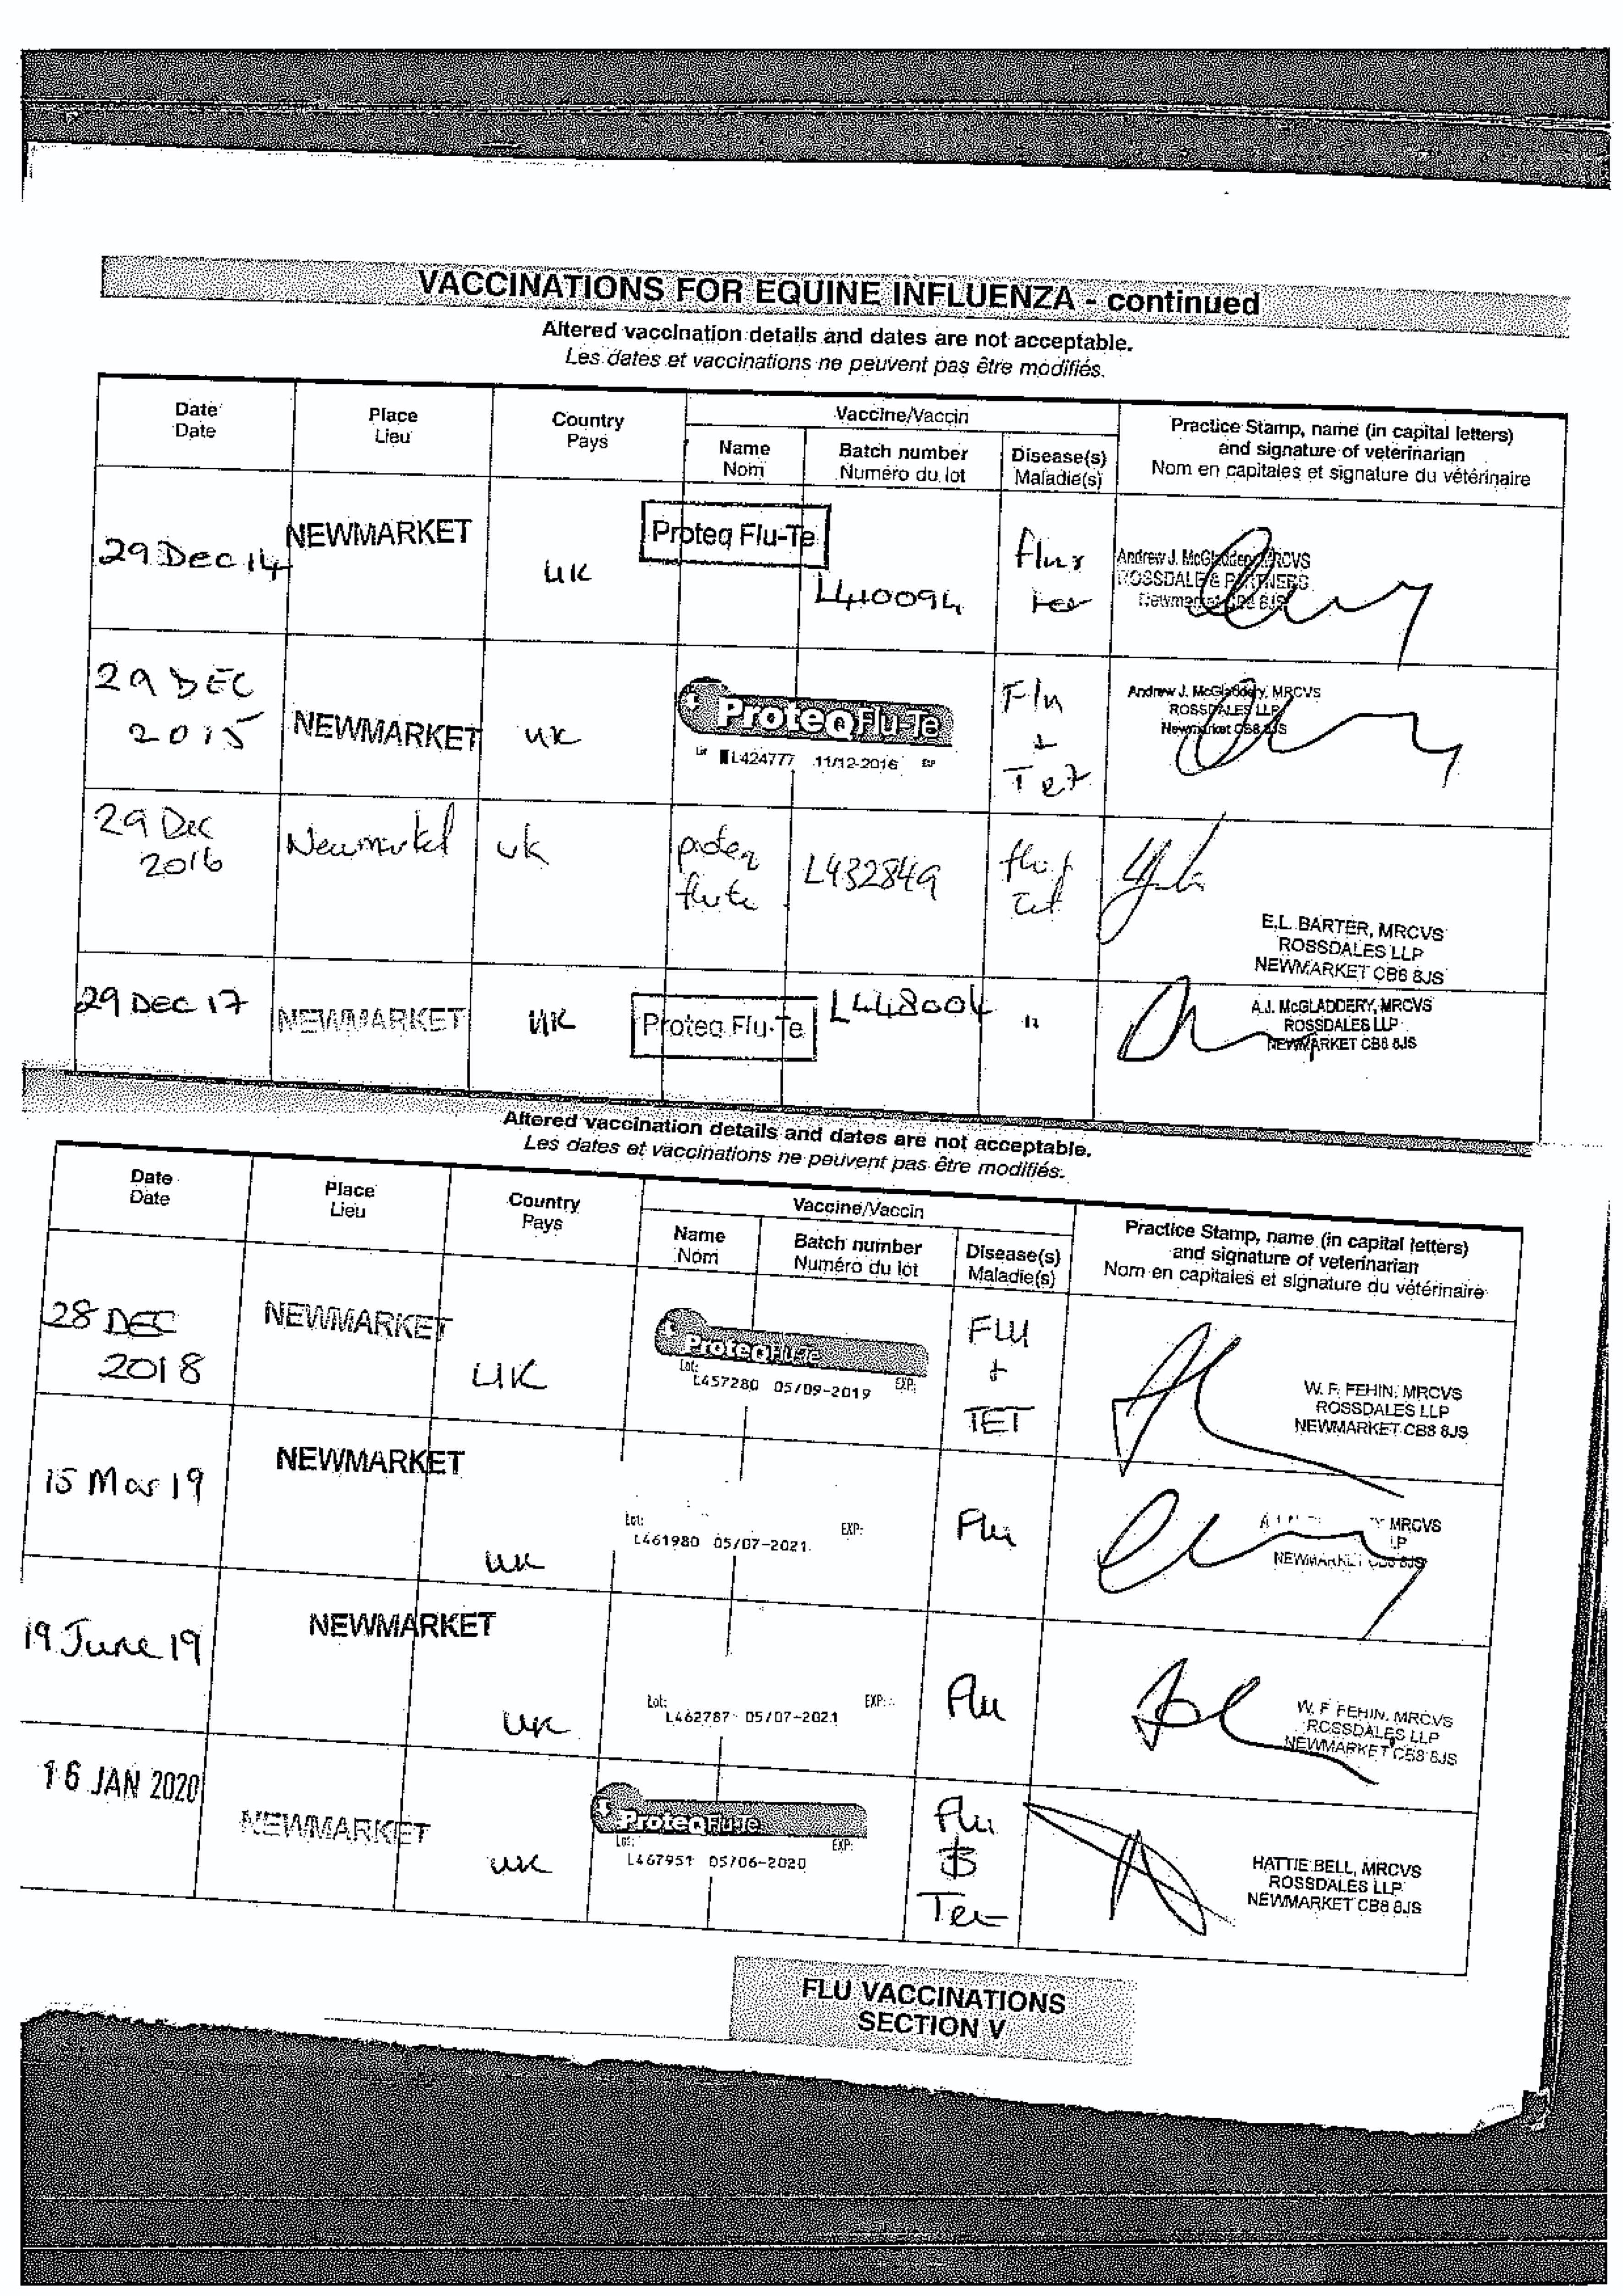 VACCINATIONS FOR EQUINE INFLUENZA - continued
Altered vaccination details and dates are not acceptable.
Les dates et vaccinations ne peuvent pas être modifiés.
Date Place Country Vaccine/Vaccin Practice Stamp, name (in capital letters)
Date Lieu Pays Name Batch number Disease(s) and signature of veterinarian
Nom Numéro du lot Maladie(s) Nom en capitales et signature du vétérinaire
29 Dec 14 NEWMARKET UK Proteq Flu-Te L410094 Andrew J. McGladdery MRCVS
ROSSDALE & PARTNERS
Newmarket CB8 8JS
29 DEC NEWMARKET UK ProteQFlu-Te Flu Andrew J. McGladdery, MRCVS
2015 L424777 11/12-2016 + ROSSDALES LLP
Tet Newmarket CB8 8JS
29 Dec Newmarket UK L432849
2016
E.L. BARTER, MRCVS
ROSSDALES LLP
NEWMARKET CB8 8JS
29 Dec 17 NEWMARKET UK Proteq Flu-Te L448004 " A.J. McGLADDERY, MRCVS
ROSSDALES LLP
NEWMARKET CB8 8JS
Altered vaccination details and dates are not acceptable.
Les dates et vaccinations ne peuvent pas être modifiés.
Date Place Country Vaccine/Vaccin Practice Stamp, name (in capital letters)
Date Lieu Pays Name Batch number Disease(s) and signature of veterinarian
Nom Numéro du lot Maladie(s) Nom en capitales et signature du vétérinaire
28 DEC NEWMARKET UK ProteQFlu-Te FLU W. F. FEHIN, MRCVS
2018 Lot: L457280 05/09-2019 EXP: + ROSSDALES LLP
TET NEWMARKET CB8 8JS
15 Mar 19 NEWMARKET UK Lot: EXP: Flu MRCVS
L461980 05/07-2021 LP
NEWMARKET CB8 8JS
19 June 19 NEWMARKET UK Lot: EXP: Flu W. F FEHIN, MRCVS
L462787 05/07-2021 ROSSDALES LLP
NEWMARKET CB8 8JS
16 JAN 2020 NEWMARKET UK ProteQFlu-Te Flu HATTIE BELL, MRCVS
Lot: EXP: ROSSDALES LLP
L467951 05/06-2020 Tet NEWMARKET CB8 8JS
FLU VACCINATIONS
SECTION V